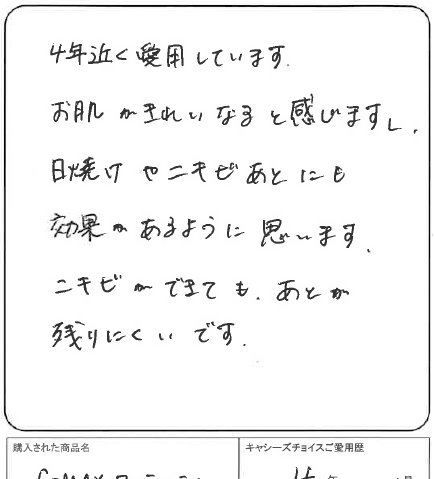 4年近く愛用しています.
お肌がきれいなると感じますし.
日焼けやニキビあとにも
効果があるように思います.
ニキビができても.あとが
残りにくいです.
購入された商品名
キャシーズチョイスご愛用歴